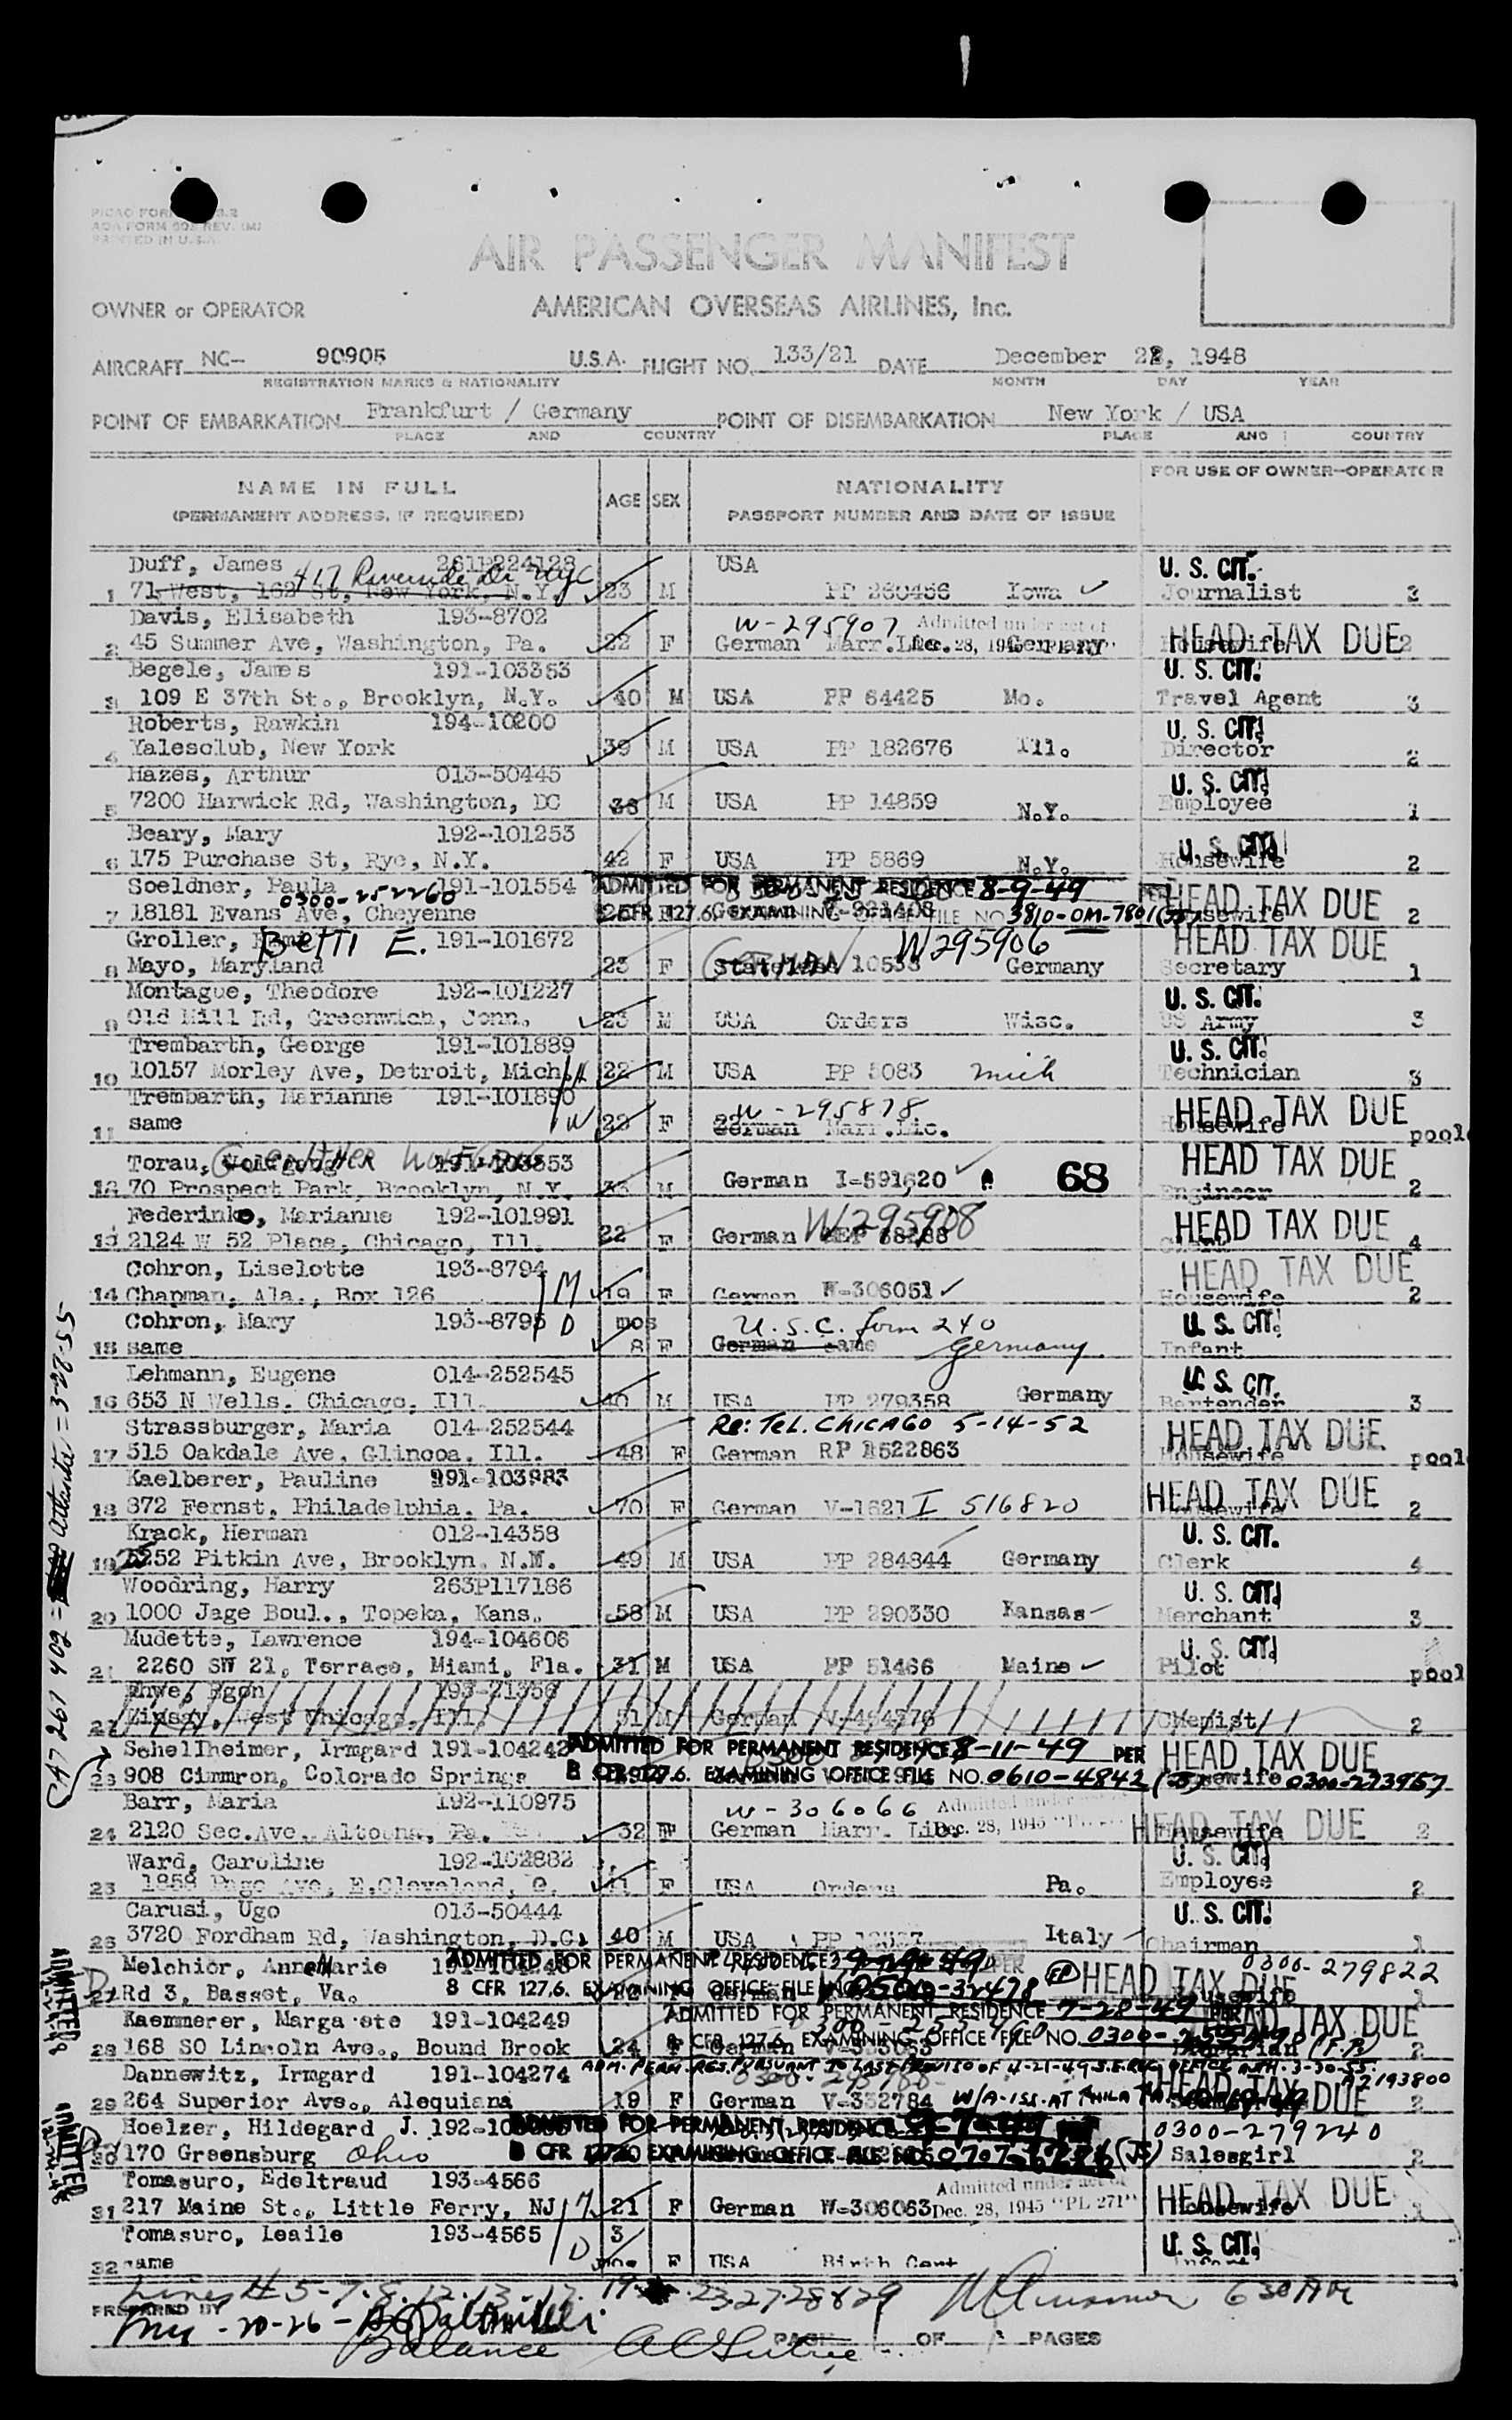 AIR PASSENGER MANIFEST
OWNER or OPERATOR AMERICAN OVERSEAS AIRLINES, Inc.
AIRCRAFT NC- 90905 U.S.A. FLIGHT NO. 133/21 DATE December 22, 1948
REGISTRATION MARKS & NATIONALITY MONTH DAY YEAR
POINT OF EMBARKATION Frankfurt / Germany POINT OF DISEMBARKATION New York / USA
PLACE AND COUNTRY PLACE AND COUNTRY
NAME IN FULL AGE SEX NATIONALITY FOR USE OF OWNER-OPERATOR
(PERMANENT ADDRESS, IF REQUIRED) PASSPORT NUMBER AND DATE OF ISSUE
Duff, James 261P224128 USA U. S. CIT.
417 Riverside Dr NYC
1 71 West, 162 St, New York, N.Y. 23 M PP 260456 Iowa Journalist 3
Davis, Elisabeth 193-8702 W-295907 Admitted under act of HEAD TAX DUE
2 45 Summer Ave, Washington, Pa. 22 F German Marr.Lic. Dec. 28, 1945 Germany Housewife 2
Begele, James 191-103353 U. S. CIT.
3 109 E 37th St., Brooklyn, N.Y. 40 M USA PP 64425 Mo. Travel Agent 3
Roberts, Rawkin 194-10200 U. S. CIT.
4 Yalesclub, New York 39 M USA PP 182676 Ill. Director 2
Hazes, Arthur 013-50445 U. S. CIT.
5 7200 Harwick Rd, Washington, DC 38 M USA PP 14859 N.Y. Employee 1
Beary, Mary 192-101253 U. S. CIT.
6 175 Purchase St, Rye, N.Y. 42 F USA PP 5869 N.Y. Housewife 2
Soeldner, Paula 191-101554 ADMITTED FOR PERMANENT RESIDENCE 8-9-49 PER HEAD TAX DUE
0300-252260
7 18181 Evans Ave, Cheyenne 8 CFR 127.6. EXAMINING OFFICE FILE NO. 3810-OM-7801 Housewife 2
Groller, Betti E. 191-101672 W295906 HEAD TAX DUE
8 Mayo, Maryland 23 F German Stateless 10538 Germany Secretary 1
Montague, Theodore 192-101227 U. S. CIT.
9 Old Mill Rd, Greenwich, Conn. 23 M USA Orders Wisc. US Army 3
Trembarth, George 191-101889 U. S. CIT.
10 10157 Morley Ave, Detroit, Mich. H 22 M USA PP 5083 Mich Technician 3
Trembarth, Marianne 191-101890 W-295878 HEAD TAX DUE
11 same W 23 F German Marr.Lic. Housewife pool
Torau, Guenther Wolfgang 191-103553 HEAD TAX DUE
12 70 Prospect Park, Brooklyn, N.Y. 33 M German I-591620 68 Engineer 2
Federinko, Marianne 192-101991 W295908 HEAD TAX DUE
13 2124 W 52 Place, Chicago, Ill. 22 F German 4
Cohron, Liselotte 193-8794 HEAD TAX DUE
14 Chapman, Ala., Box 126 M 19 F German W-306051 Housewife 2
Cohron, Mary 193-8795 D mos U.S.C. form 240 U. S. CIT.
15 same 8 F German same Germany Infant
Lehmann, Eugene 014-252545 U. S. CIT.
16 653 N Wells, Chicago, Ill. 40 M USA PP 279358 Germany Bartender 3
Strassburger, Maria 014-252544 Re: Tel. CHICAGO 5-14-52 HEAD TAX DUE
17 515 Oakdale Ave, Glincoa, Ill. 48 F German RP 1522863 Housewife pool
Kaelberer, Pauline 191-103983 HEAD TAX DUE
18 872 Fernst, Philadelphia, Pa. 70 F German V-1621 I 516820 Housewife 2
Krack, Herman 012-14358 U. S. CIT.
19 2252 Pitkin Ave, Brooklyn, N.M. 49 M USA PP 284844 Germany Clerk 4
Woodring, Harry 263P117186 U. S. CIT.
20 1000 Jage Boul., Topeka, Kans. 58 M USA PP 290330 Kansas Merchant 3
Mudette, Lawrence 194-104606 U. S. CIT.
21 2260 SW 21, Terrace, Miami, Fla. 31 M USA PP 51466 Maine Pilot pool
Egon
22 West Chicago, Ill. 51 M German Chemist 2
Schellheimer, Irmgard 191-104242 ADMITTED FOR PERMANENT RESIDENCE 8-11-49 PER HEAD TAX DUE
23 908 Cimmron, Colorado Springs 8 CFR 127.6. EXAMINING OFFICE FILE NO. 0610-4842 Housewife 0300-273957
Barr, Maria 192-110975 W-306066 Admitted under act of HEAD TAX DUE
24 2120 Sec.Ave, Altoona, Pa. 32 F German Marr. Lic. Dec. 28, 1945 Housewife 2
Ward, Caroline 192-102882 U. S. CIT.
25 1858 Page Ave, E.Cleveland, O. 41 F USA Orders Pa. Employee 2
Carusi, Ugo 013-50444 U. S. CIT.
26 3720 Fordham Rd, Washington, D.C. 40 M USA PP 12537 Italy Chairman 1
Melchior, AnneMarie ADMITTED FOR PERMANENT RESIDENCE 9-29-49 PER HEAD TAX DUE 0300-279822
27 Rd 3, Basset, Va. 8 CFR 127.6. EXAMINING OFFICE FILE NO. Housewife 1
Kaemmerer, Margarete 191-104249 ADMITTED FOR PERMANENT RESIDENCE 7-28-49 HEAD TAX DUE
28 168 SO Lincoln Ave., Bound Brook 24 F German 8 CFR 127.6. EXAMINING OFFICE FILE NO. 2
Dannewitz, Irmgard 191-104274 ADM. PERM. RES. PURSUANT TO LAST PROVISO OF 4-21-49 3-30-55 A2193800
29 264 Superior Ave., Alequiana 19 F German V-332784 W/A-ISS. AT PHILA PA HEAD TAX DUE 2
Hoelzer, Hildegard J. ADMITTED FOR PERMANENT RESIDENCE 9-7-49 0300-279240
30 170 Greensburg Ohio 8 CFR 127.6. EXAMINING OFFICE FILE NO. Salesgirl 2
Tomasuro, Edeltraud 193-4566 Admitted under act of HEAD TAX DUE
31 217 Maine St., Little Ferry, NJ M 21 F German W-306063 Dec. 28, 1945 "PL 271" Housewife 1
Tomasuro, Leaile 193-4565 D 3 U. S. CIT.
32 same mos F USA Birth Cert Infant
Lines # 5-7-8-12-13-17-19 23 27 28 & 29 630 AM
PREPARED BY
20-26
Balance
PAGE 1 OF 1 PAGES
A7 267 402 = Atlanta = 3-28-55
ADMITTED
ADMITTED